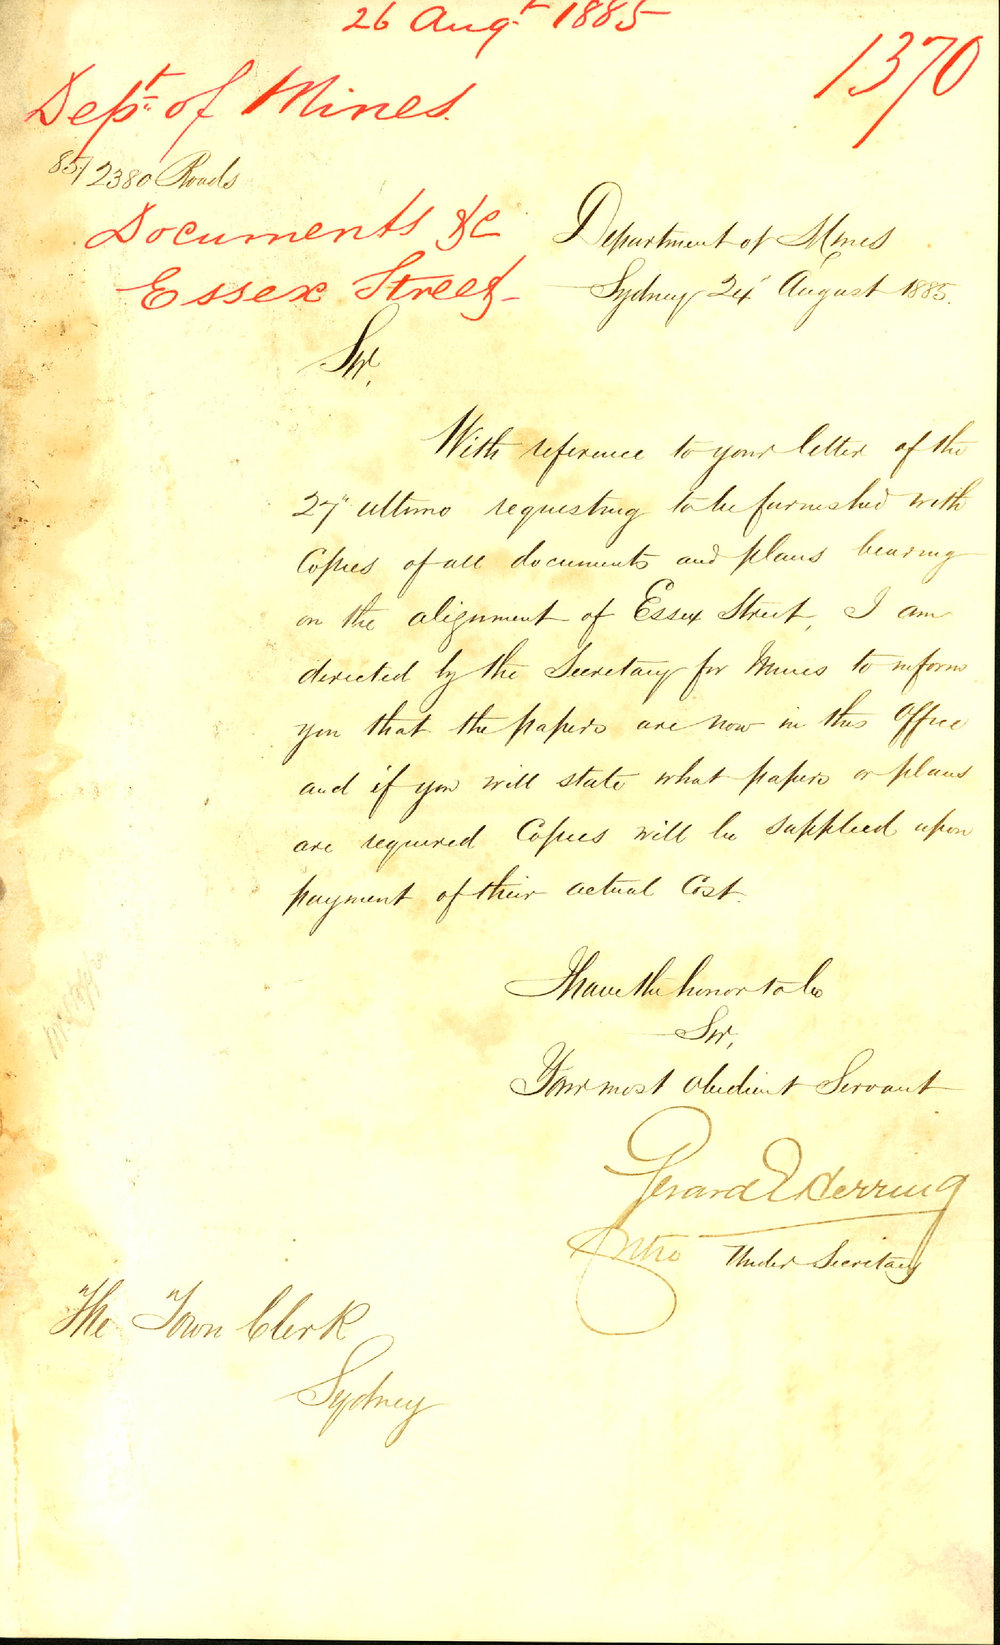 26 Augt 1885
1370
Dept. of Mines.
85/2380 Roads
Documents &c
Essex Street
Department of Mines
Sydney 24" August 1885.
Sir,
With reference to your letter of the
27" ultimo requesting to be furnished with
Copies of all documents and plans bearing
on the alignment of Essex Street, I am
directed by the Secretary for Mines to inform
you that the papers are now in this Office
and if you will state what papers or plans
are required Copies will be supplied upon
payment of their actual Cost.
I have the honor to be
Sir,
Your most obedient Servant
Gerard E Herring
Under Secretary
The Town Clerk
Sydney